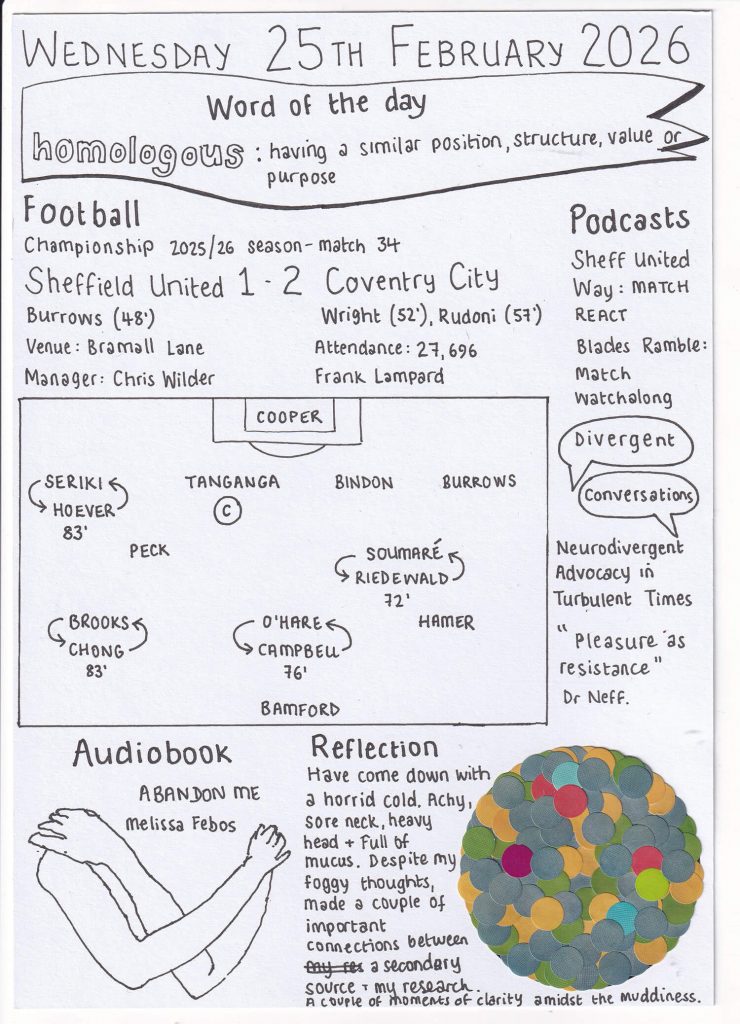 WEDNESDAY 25TH FEBRUARY 2026
Word of the day
homologous : having a similar position, structure, value or
purpose
Football
Championship 2025/26 season - match 34
Sheffield United 1 - 2 Coventry City
Burrows (48')
Wright (52'), Rudoni (57')
Venue: Bramall Lane
Attendance: 27,696
Manager: Chris Wilder
Frank Lampard
COOPER
SERIKI
HOEVER
83'
TANGANGA
C
BINDON
BURROWS
PECK
SOUMARÉ
RIEDEWALD
72'
BROOKS
CHONG
83'
O'HARE
CAMPBELL
76'
HAMER
BAMFORD
Podcasts
Sheff United
Way: MATCH
REACT
Blades Ramble:
Match
Watchalong
Divergent
Conversations
Neurodivergent
Advocacy in
Turbulent Times
"Pleasure as
resistance"
Dr Neff.
Audiobook
ABANDON ME
Melissa Febos
Reflection
Have come down with
a horrid cold. Achy,
sore neck, heavy
head + full of
mucus. Despite my
foggy thoughts,
made a couple of
important
connections between
my res a secondary
source + my research.
A couple of moments of clarity amidst the muddiness.